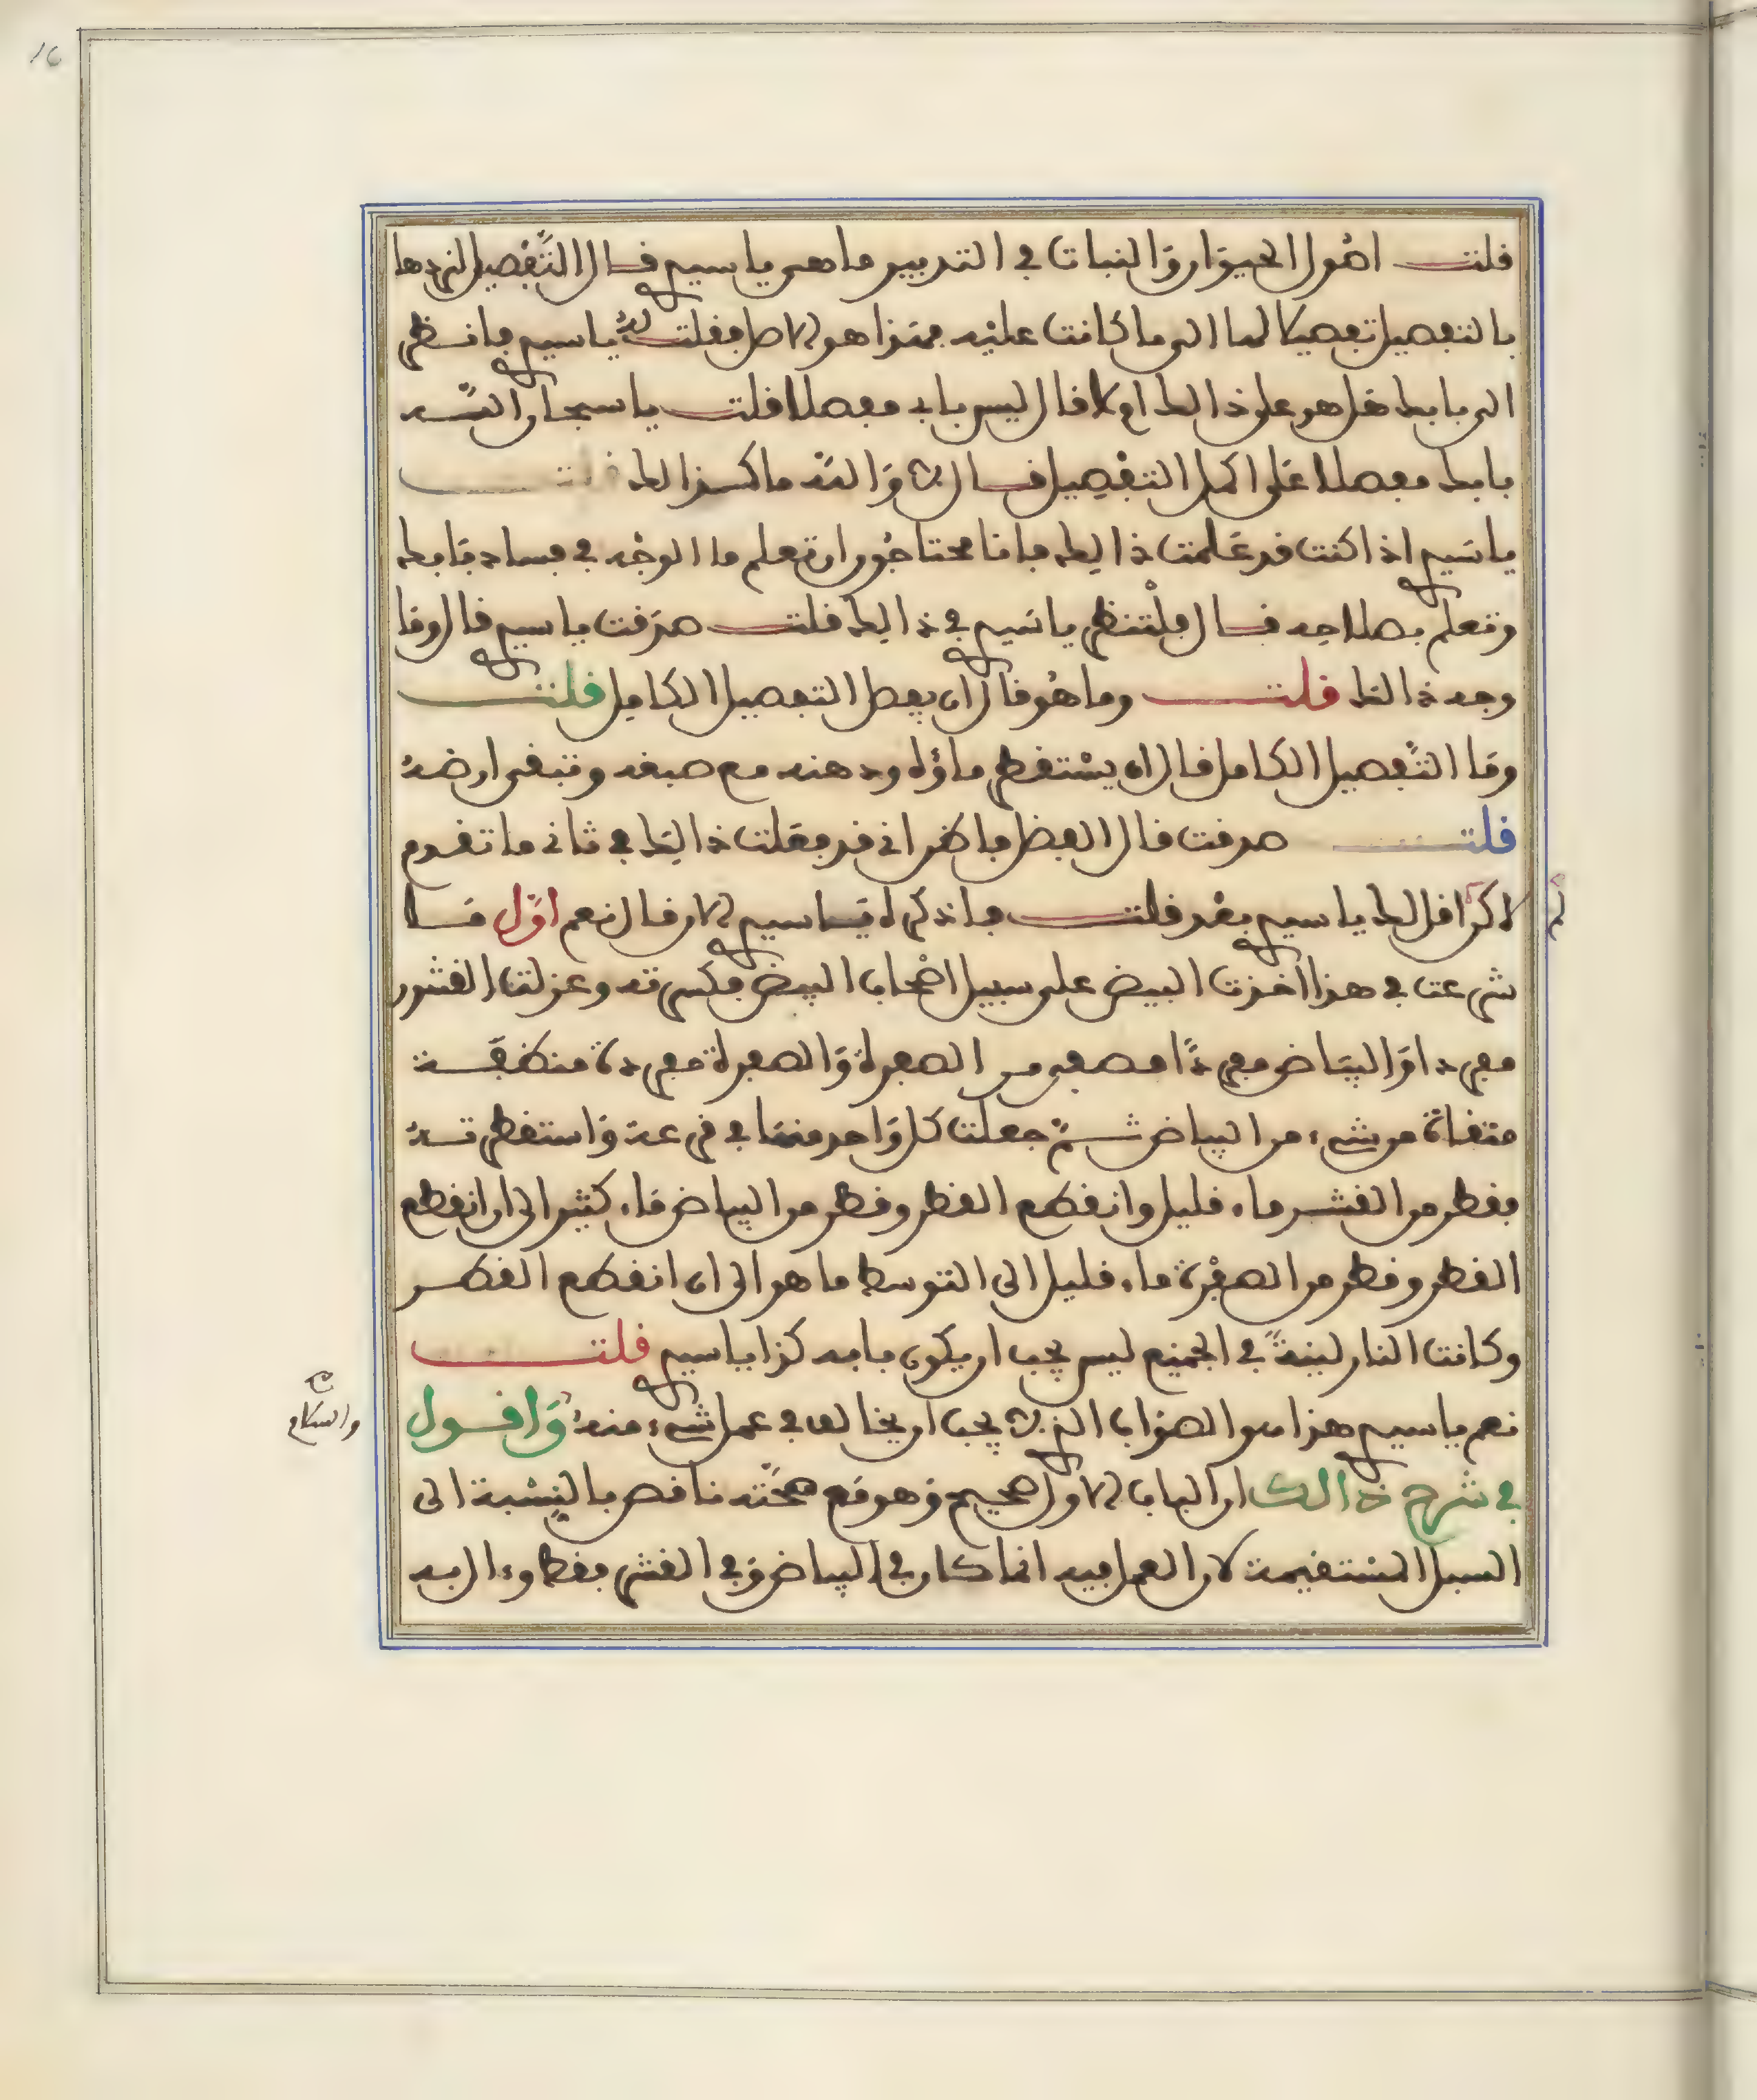 قلت اصول الحيوان والنبات في التدبير ما هي يا سيدي قال التفصيل لردها
بالتفصيل تفصيلا لها الى ما كانت عليه فهذا هو الاصل فقلت له يا سيدي فانظر
الى بابك هل هو على ذالك ام لا قال ليس بابي مفصلا قلت يا سبحان الله
بابك مفصلا على اكمل التفصيل قال اي والله ما كذالك قلت
يا سيدي اذا كنت قد علمت ذالك فانا محتاجون ان تعلم ما الوجه في فساد بابك
وتعلم بصلاحه قال فلتنظر يا سيدي في ذالك قلت صدقت يا سيدي قال وما
وجه ذالك قلت وما هو قال ان يفصل التفصيل الكامل قلت
وما التفصيل الكامل قال ان يستقطر ماؤه ودهنه مع صبغه وتبقى ارضه
قلت صدقت قال الفضل فاظن اني قد فعلت ذالك في ثاني ما تقدم
لم اذكر لك يا سيدي بعد قلت فاذكره يا سيدي الان قال نعم اول ما
شرعت في هذا اخذت البيض على سبيل اصحاب البيض فكسرته وعزلت القشور
مفردا والبياض مفردا مصفى من الصفرة والصفرة مفردة منظفة
منقاة من شيء من البياض ثم جعلت كل واحد منها في قرعة واستقطرته
فقطر من القشر ماء قليل وانقطع القطر وقطر من البياض ماء كثير الى ان انقطع
القطر وقطر من الصفرة ماء قليل الى التوسط ما هو الى ان انقطع القطر
وكانت النار لينة في الجميع ليس يجب ان يكون بابه كذا يا سيدي قلت
نعم يا سيدي هذا هو الصواب الذي يجب ان يخالف في عمل شيء منه واقول
في شرح ذالك ان الباب الاول صحيح وهو مع صحته ناقص بالنسبة الى
السبل المستقيمة لان العمل فيه انما كان في البياض وفي القشر فقط وءال به
والسلام